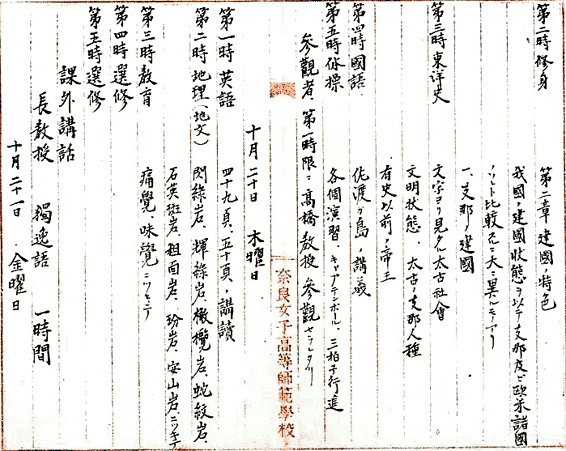 第二時修身
第二章 建國ノ特色
我國ノ建國狀態ヲ以テ支那及ビ歐米諸國
ノソレト比較スルニ大ニ異ルモノアリ
第三時東洋史
一、支那ノ建國
文字ヨリ見タル太古社會
文明狀態、太古ノ支那人種
有史以前ノ帝王
第四時國語
佐渡ガ島ノ講義
第五時体操
各個演習、キャプテンボール、三拍子行進
參觀者、第一時限ニ高橋教授參觀セラレタリ
奈良女子高等師範學校
十月二十日 木曜日
第一時英語
四十九頁、五十頁、講讀
第二時地理(地文)
閃綠岩、輝綠岩、橄欖岩、蛇紋岩、
石英斑岩、粗面岩、玢岩、安山岩ニツキテ
第三時教育
痛覺、味覺ニツキテ
第四時選修
第五時選修
課外講話
長教授 獨逸語 一時間
十月二十一日 金曜日